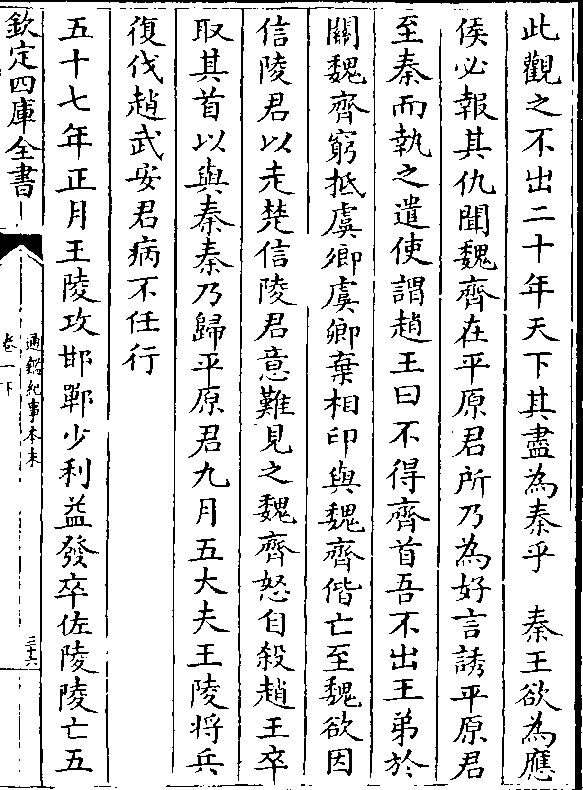 此觀之不出二十年天下其盡為秦乎　秦王欲為應
侯必報其仇聞魏齊在平原君所乃為好言誘平原君
至秦而執之遣使謂趙王曰不得齊首吾不出王弟於
關魏齊窮抵虞卿虞卿棄相印與魏齊偕亡至魏欲因
信陵君以走楚信陵君意難見之魏齊怒自殺趙王卒
取其首以與秦秦乃歸平原君九月五大夫王陵将兵
復伐趙武安君病不任行
五十七年正月王陵攻邯鄲少利益發卒佐陵陵亡五
欽定四庫全書
通鑑紀事本末
卷一下
三十六